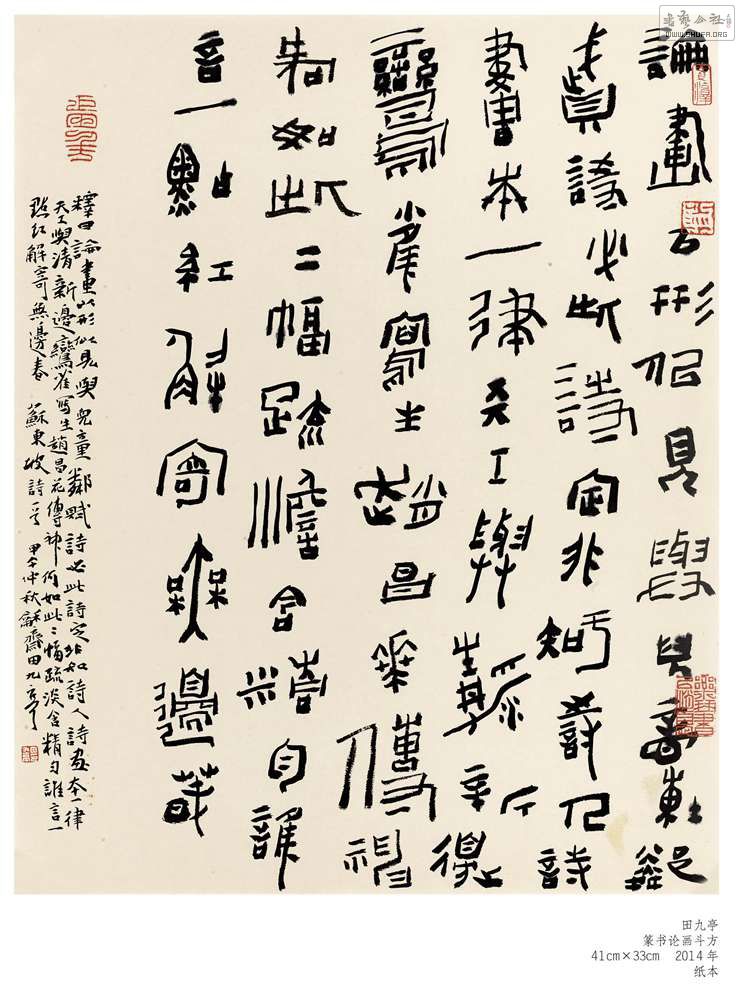 論畫以形似見與兒童鄰
賦詩必此詩定非知詩人詩
畫本一律天工與清新
邊鸞雀寫生趙昌花傳神
何如此二幅疏淡含精自誰
言一點紅解寄無邊春
釋曰論畫以形似見與兒童鄰賦詩必此詩定非知詩人詩畫本一律
天工與清新邊鸞雀寫生趙昌花傳神何如此二幅疏淡含精勻誰言一
點紅解寄無邊春 蘇東坡詩一首 甲午仲秋齋田九亭
书艺公社
WWW.SHUFA.ORG
田九亭
篆书论画斗方
41cm×33cm 2014年
纸本